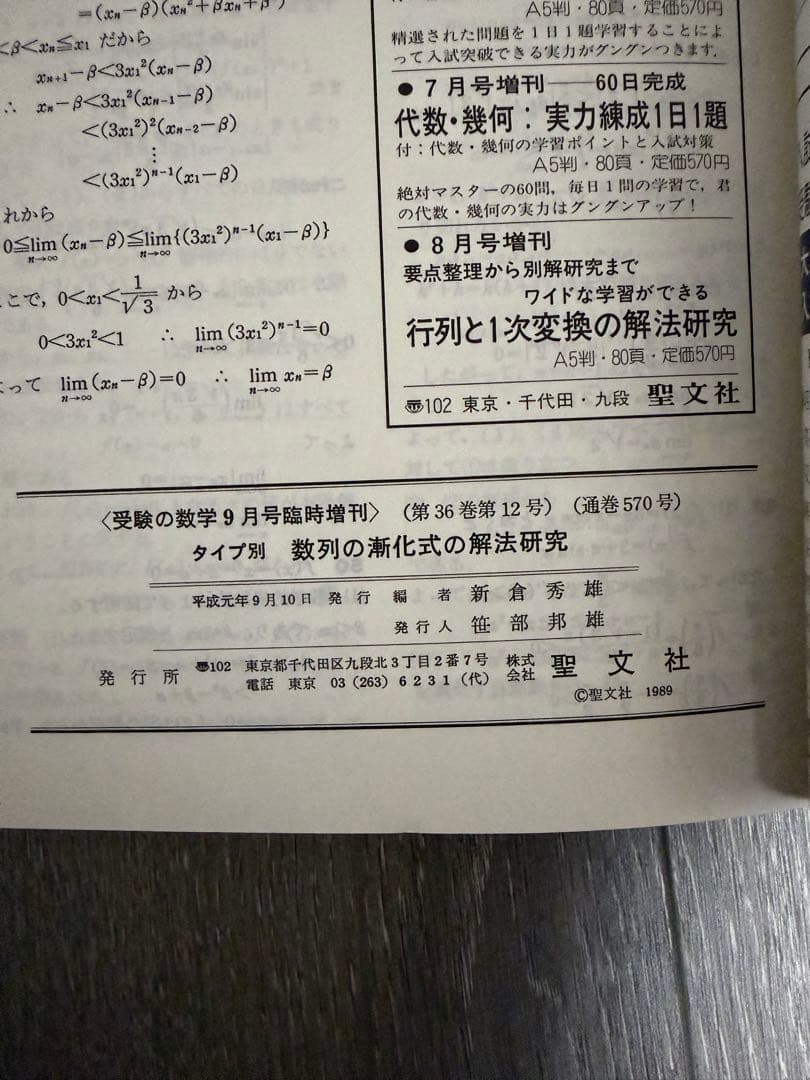 =(xₙ−β)(xₙ²+βxₙ+β
<β<xₙ≦x₁ だから
xₙ₊₁−β<3x₁²(xₙ−β)
∴ xₙ−β<3x₁²(xₙ₋₁−β)
<(3x₁²)²(xₙ₋₂−β)
⋮
<(3x₁²)ⁿ⁻¹(x₁−β)
れから
0≦lim(xₙ−β)≦lim{(3x₁²)ⁿ⁻¹(x₁−β)}
n→∞ n→∞
こで, 0<x₁<1/√3 から
0<3x₁²<1 ∴ lim(3x₁²)ⁿ⁻¹=0
n→∞
よって lim(xₙ−β)=0 ∴ lim xₙ=β
n→∞ n→∞
A5判・80頁・定価570円
精選された問題を1日1題学習することによ
って入試突破できる実力がグングンつきます.
● 7月号増刊——60日完成
代数・幾何：実力練成1日1題
付：代数・幾何の学習ポイントと入試対策
A5判・80頁・定価570円
絶対マスターの60問，毎日1問の学習で，君
の代数・幾何の実力はグングンアップ！
● 8月号増刊
要点整理から別解研究まで
ワイドな学習ができる
行列と1次変換の解法研究
A5判・80頁・定価570円
〠102 東京・千代田・九段 聖文社
〈受験の数学9月号臨時増刊〉（第36巻第12号）（通巻570号）
タイプ別 数列の漸化式の解法研究
平成元年9月10日 発行 編者 新倉秀雄
発行人 笹部邦雄
発行所 〠102 東京都千代田区九段北3丁目2番7号 株式会社 聖文社
電話 東京 03(263)6231(代)
©聖文社 1989